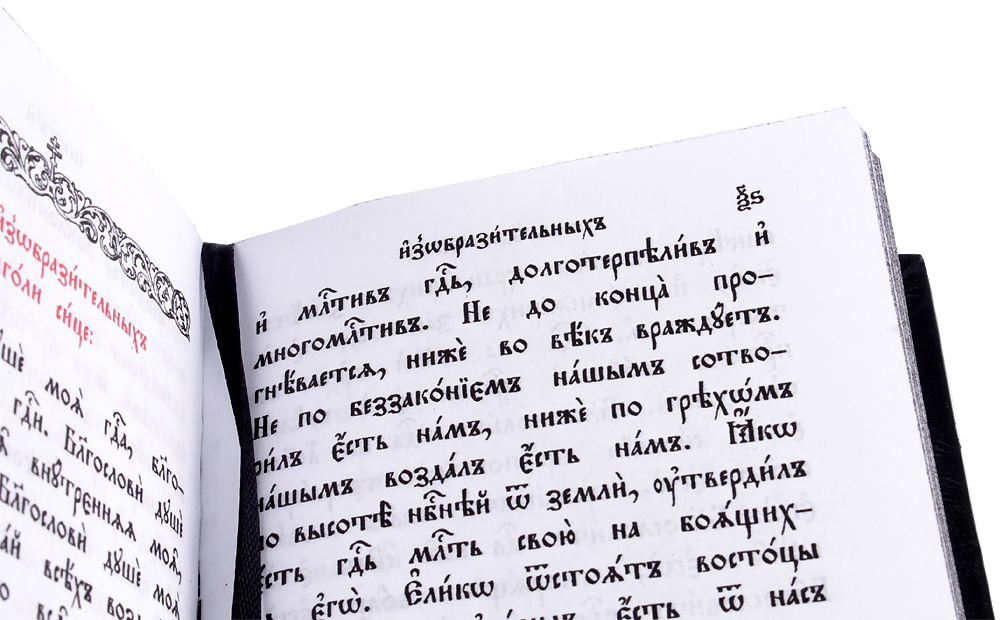 и҆зѡбрази́тельныхъ
глаго́ли си́це:
душѐ моѧ̀ гдⷭ҇а, блг҃о-
гдⷭ҇и. Бл҃гословѝ душѐ
внꙋ́тренняя моѧ̑,
Бл҃гословѝ душѐ моѧ̀
всѣ́хъ
и҆з̾ѡбрази́тельныхъ
ѯ҃ѕ
и҆ млⷭ҇тивъ гдⷭ҇ь, долготерпѣли́въ и҆
многомлⷭ҇тивъ. Не до конца̀ про-
гнѣ́вается, нижѐ во вѣ́къ враждꙋ́етъ.
Не по беззако́нїємъ на́шымъ сотво-
ри́лъ є҆́сть на́мъ, нижѐ по грѣхѡ́мъ
на́шымъ возда́лъ є҆́сть на́мъ. Ꙗ҆́кѡ
по высотѣ̀ нбⷭ҇нѣй ѿ землѝ, ᲂу҆тверди́лъ
є҆́сть гдⷭ҇ь млⷭ҇ть свою̀ на боѧ́щихсѧ-
є҆гѡ̀. Е҆ли́кѡ ѿстоѧ́тъ восто́цы
є҆́сть ѿ на́съ